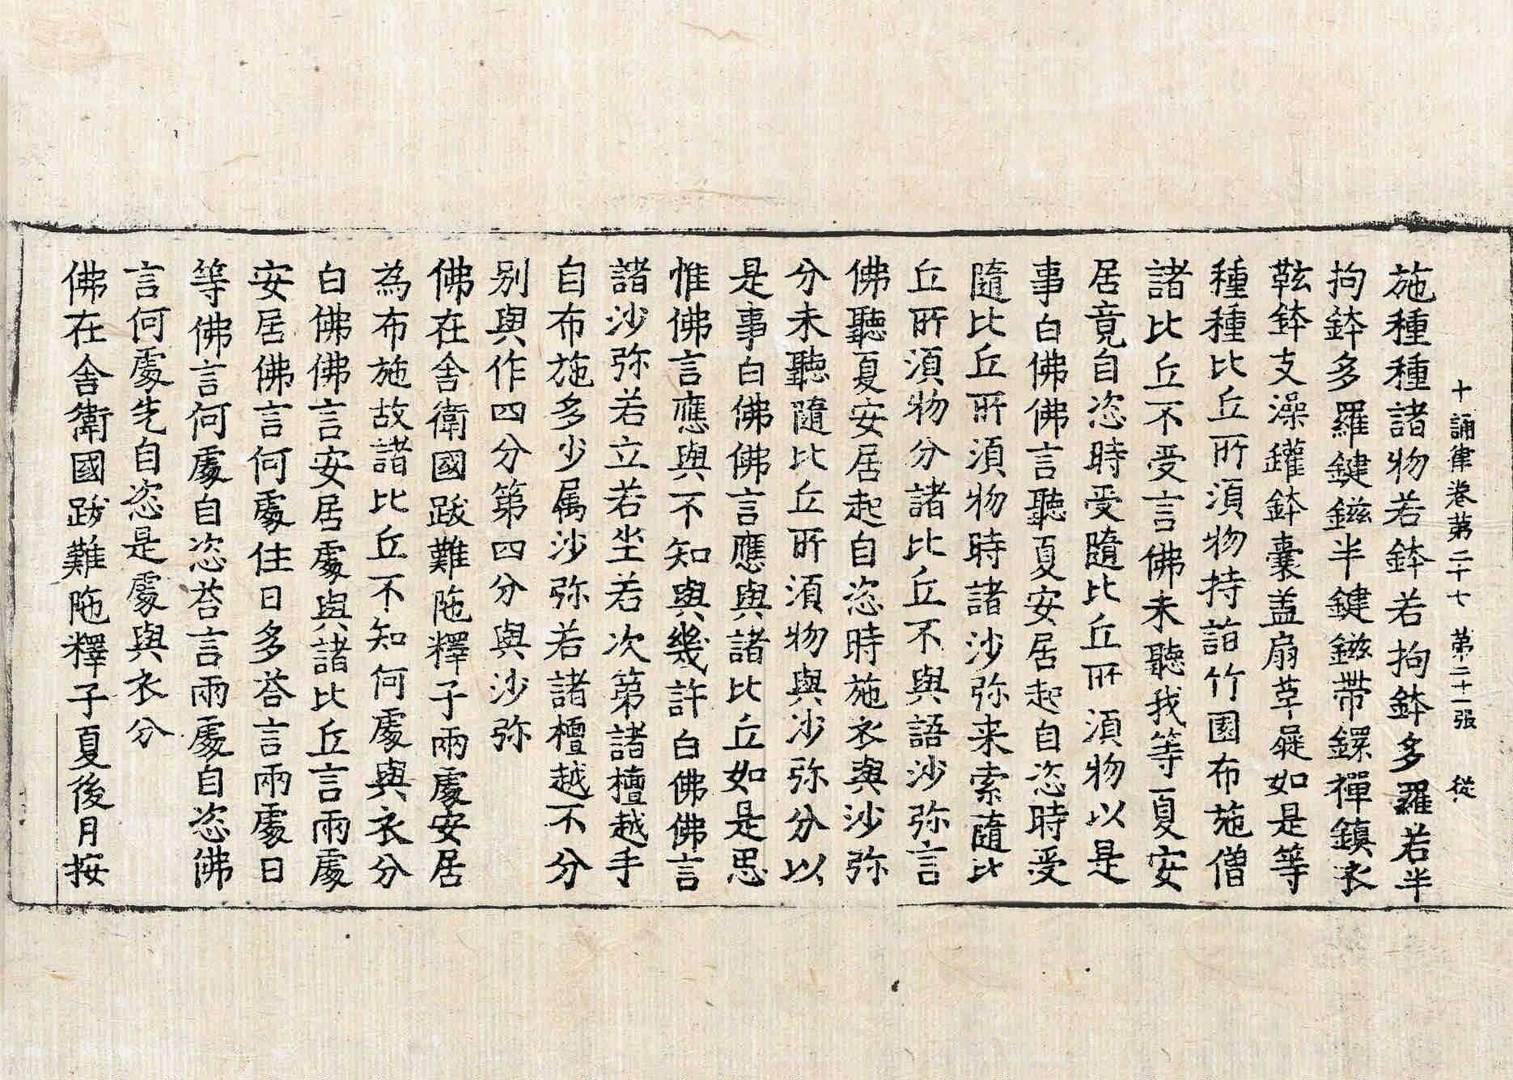 十誦律卷第二十七　第二十一張　從
施種種諸物若鉢若拘鉢多羅若半
拘鉢多羅鍵鎡半鍵鎡帶鏍禪鎮衣
鞊鉢支澡罐鉢囊盖扇草屣如是等
種種比丘所須物持詣竹園布施僧
諸比丘不受言佛未聽我等夏安
居竟自恣時受隨比丘所須物以是
事白佛佛言聽夏安居起自恣時受
隨比丘所須物時諸沙弥来索隨比
丘所須物分諸比丘不與語沙弥言
佛聽夏安居起自恣時施衣與沙弥
分未聽隨比丘所須物與沙弥分以
是事白佛佛言應與諸比丘如是思
惟佛言應與不知與幾許白佛佛言
諸沙弥若立若坐若次第諸檀越手
自布施多少属沙弥若諸檀越不分
别與作四分第四分與沙弥
佛在舍衛國跋難陁釋子兩處安居
為布施故諸比丘不知何處與衣分
白佛佛言安居處與諸比丘言兩處
安居佛言何處住日多荅言兩處日
等佛言何處自恣荅言兩處自恣佛
言何處先自恣是處與衣分
佛在舍衛國跋難陁釋子夏後月按